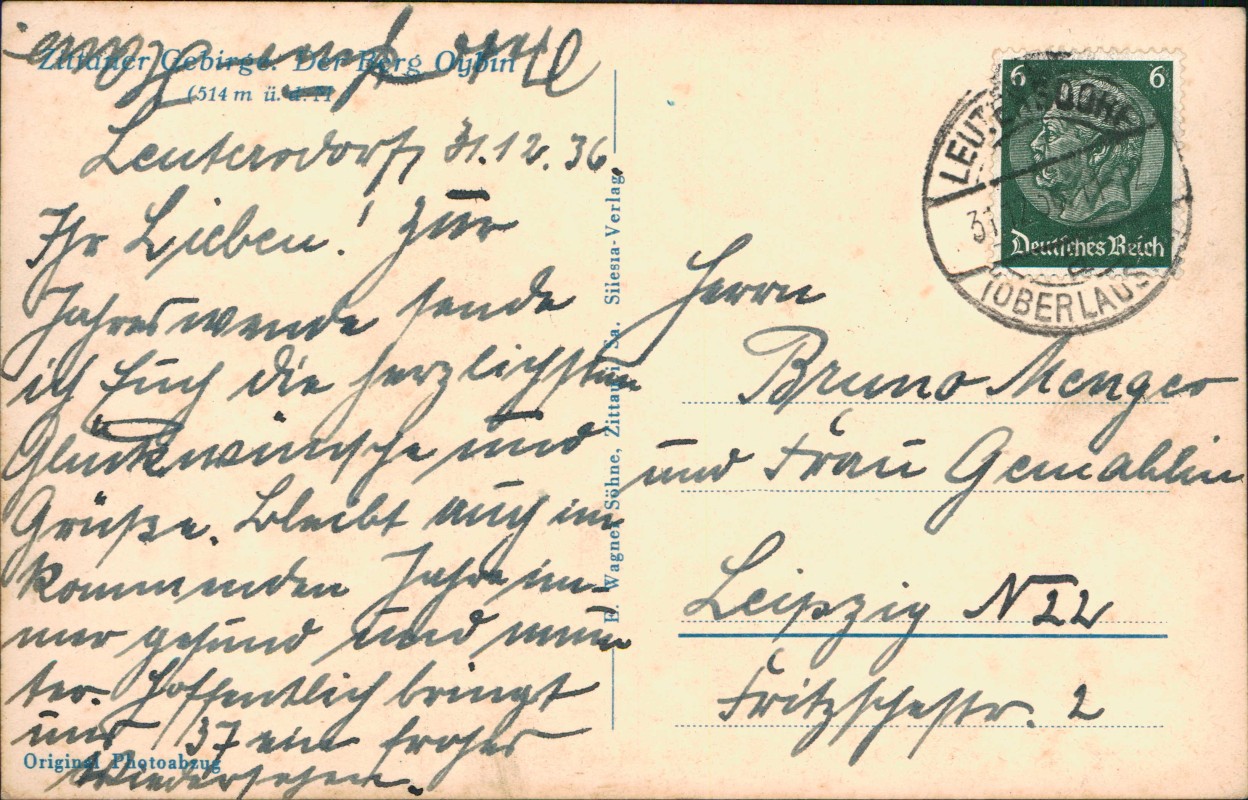 Zittauer Gebirge. Der Berg Oybin
(514 m ü. d. M
Leutersdorf, 31.12.36.
Ihr Lieben! Zur
Jahreswende sende
ich Euch die herzlichsten
Glückwünsche und
Grüße. Bleibt auch im
kommenden Jahre im-
mer gesund und mun
ter. Hoffentlich bringt
uns 37 ein frohes
Wiedersehen.
Original Photoabzug
E. Wagner Söhne, Zittau i. Sa. Silesia-Verlag
6 6
Deutsches Reich
LEUTERSDORF
31.12.
(OBERLAUS
Herrn
Bruno Menger
und Frau Gemahlin
Leipzig N 22
Fritzschestr. 2